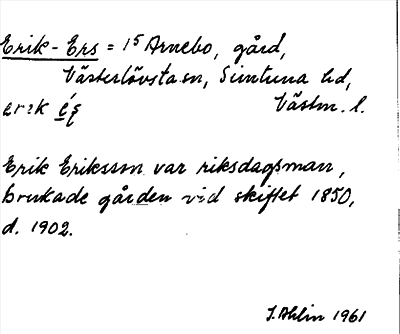 Erik-Ers = 1⁵ Arnebo, gård,
Västerlövsta sn, Simtuna hd,
Västm. l.
Erik Eriksson var riksdagsman,
brukade gården vid skiftet 1850,
d. 1902.
J. Ahlin 1961